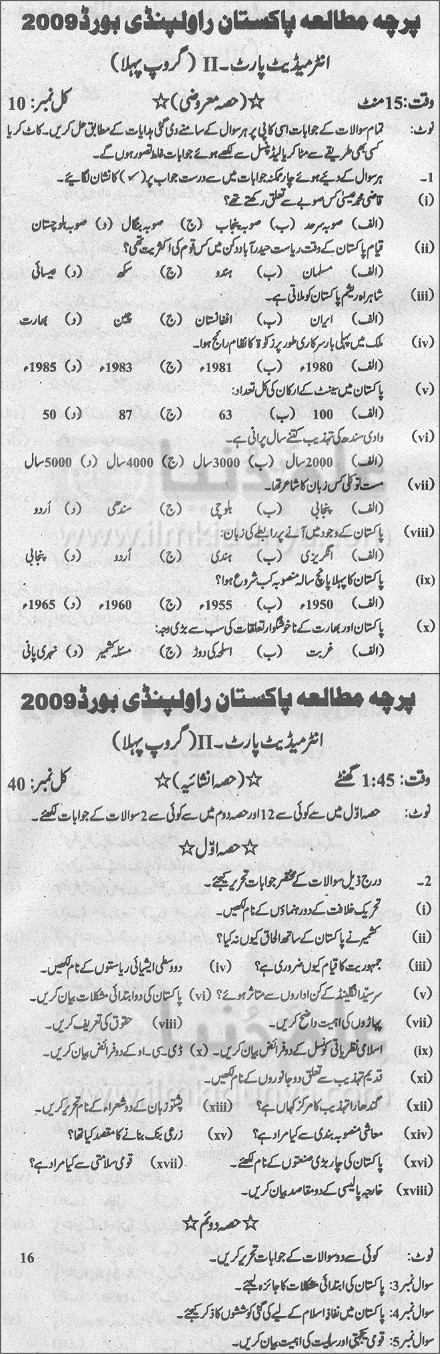 پرچہ مطالعہ پاکستان راولپنڈی بورڈ 2009
انٹرمیڈیٹ پارٹ۔II (گروپ پہلا)
وقت: 15 منٹ ☆(حصہ معروضی)☆ کل نمبر: 10
نوٹ: تمام سوالات کے جوابات اسی کاپی پر ہر سوال کے سامنے دی گئی ہدایات کے مطابق حل کریں۔ کاٹ کر یا
کسی بھی طریقے سے مٹا کر یا لیڈ پنسل سے لکھے ہوئے جوابات غلط تصور ہوں گے۔
1۔ ہر سوال کے دیئے ہوئے چار ممکنہ جوابات میں سے درست جواب پر (✓) کا نشان لگائیے۔
(i) قاضی محمد عیسیٰ کس صوبے سے تعلق رکھتے تھے؟
(الف) صوبہ سرحد (ب) صوبہ پنجاب (ج) صوبہ بنگال (د) صوبہ بلوچستان
(ii) قیام پاکستان کے وقت ریاست حیدرآباد دکن میں کس قوم کی اکثریت تھی؟
(الف) مسلمان (ب) ہندو (ج) سکھ (د) عیسائی
(iii) شاہراہ ریشم پاکستان کو ملاتی ہے۔
(الف) ایران (ب) افغانستان (ج) چین (د) بھارت
(iv) ملک میں پہلی بار سرکاری طور پر زکوٰۃ کا نظام رائج ہوا۔
(الف) 1980ء (ب) 1981ء (ج) 1983ء (د) 1985ء
(v) پاکستان میں سینٹ کے ارکان کی کل تعداد:
(الف) 100 (ب) 63 (ج) 87 (د) 50
(vi) وادی سندھ کی تہذیب کتنے سال پرانی ہے۔
(الف) 2000 سال (ب) 3000 سال (ج) 4000 سال (د) 5000 سال
(vii) مست توکلی کس زبان کا شاعر تھا۔
(الف) پنجابی (ب) بلوچی (ج) سندھی (د) اُردو
(viii) پاکستان کے وجود میں آنے پر رابطے کی زبان:
(الف) انگریزی (ب) ہندی (ج) اُردو (د) پنجابی
(ix) پاکستان کا پہلا پانچ سالہ منصوبہ کب شروع ہوا؟
(الف) 1950ء (ب) 1955ء (ج) 1960ء (د) 1965ء
(x) پاکستان اور بھارت کے ناخوشگوار تعلقات کی سب سے بڑی وجہ:
(الف) غربت (ب) اسلحہ کی دوڑ (ج) مسئلہ کشمیر (د) نہری پانی
پرچہ مطالعہ پاکستان راولپنڈی بورڈ 2009
انٹرمیڈیٹ پارٹ۔II (گروپ پہلا)
وقت: 1:45 گھنٹے ☆(حصہ انشائیہ)☆ کل نمبر: 40
نوٹ: حصہ اوّل میں سے کوئی سے 12 اور حصہ دوم میں سے کوئی سے 2 سوالات کے جوابات لکھئے۔
☆حصہ اوّل☆
2۔ درج ذیل سوالات کے مختصر جوابات تحریر کیجئے۔
(i) تحریک خلافت کے دو رہنماؤں کے نام لکھیں۔
(ii) کشمیر نے پاکستان کے ساتھ الحاق کیوں نہ کیا؟
(iii) جمہوریت کا قیام کیوں ضروری ہے؟ (iv) دو وسطی ایشیائی ریاستوں کے نام لکھیں۔
(v) سرسید انگلینڈ کے کن اداروں سے متاثر ہوئے؟ (vi) پاکستان کی دو ابتدائی مشکلات بیان کریں۔
(vii) پہاڑوں کی اہمیت واضح کریں۔ (viii) حقوق کی تعریف کریں۔
(ix) اسلامی نظریاتی کونسل کے دو فرائض بیان کریں۔ (x) ڈی۔سی۔او کے دو فرائض بیان کریں۔
(xi) قدیم تہذیب سے تعلق دو جانوروں کے نام لکھیں۔
(xii) گندھارا تہذیب کا مرکز کہاں ہے؟ (xiii) پشتو زبان کے دو شعراء کے نام تحریر کریں۔
(xiv) معاشی منصوبہ بندی سے کیا مراد ہے؟ (xv) زرعی بنک بنانے کا مقصد کیا تھا؟
(xvi) پاکستان کی چار بڑی صنعتوں کے نام لکھئے۔ (xvii) قومی سلامتی سے کیا مراد ہے؟
(xviii) خارجہ پالیسی کے دو مقاصد بیان کریں۔
☆حصہ دوئم☆
نوٹ: کوئی سے دو سوالات کے جوابات تحریر کریں۔ 16
سوال نمبر 3: پاکستان کی ابتدائی مشکلات کا جائزہ لیجئے۔
سوال نمبر 4: پاکستان میں نفاذ اسلام کے لیے کی گئی کوششوں کا ذکر کیجئے۔
سوال نمبر 5: قومی یکجہتی اور سالمیت کی اہمیت بیان کریں۔